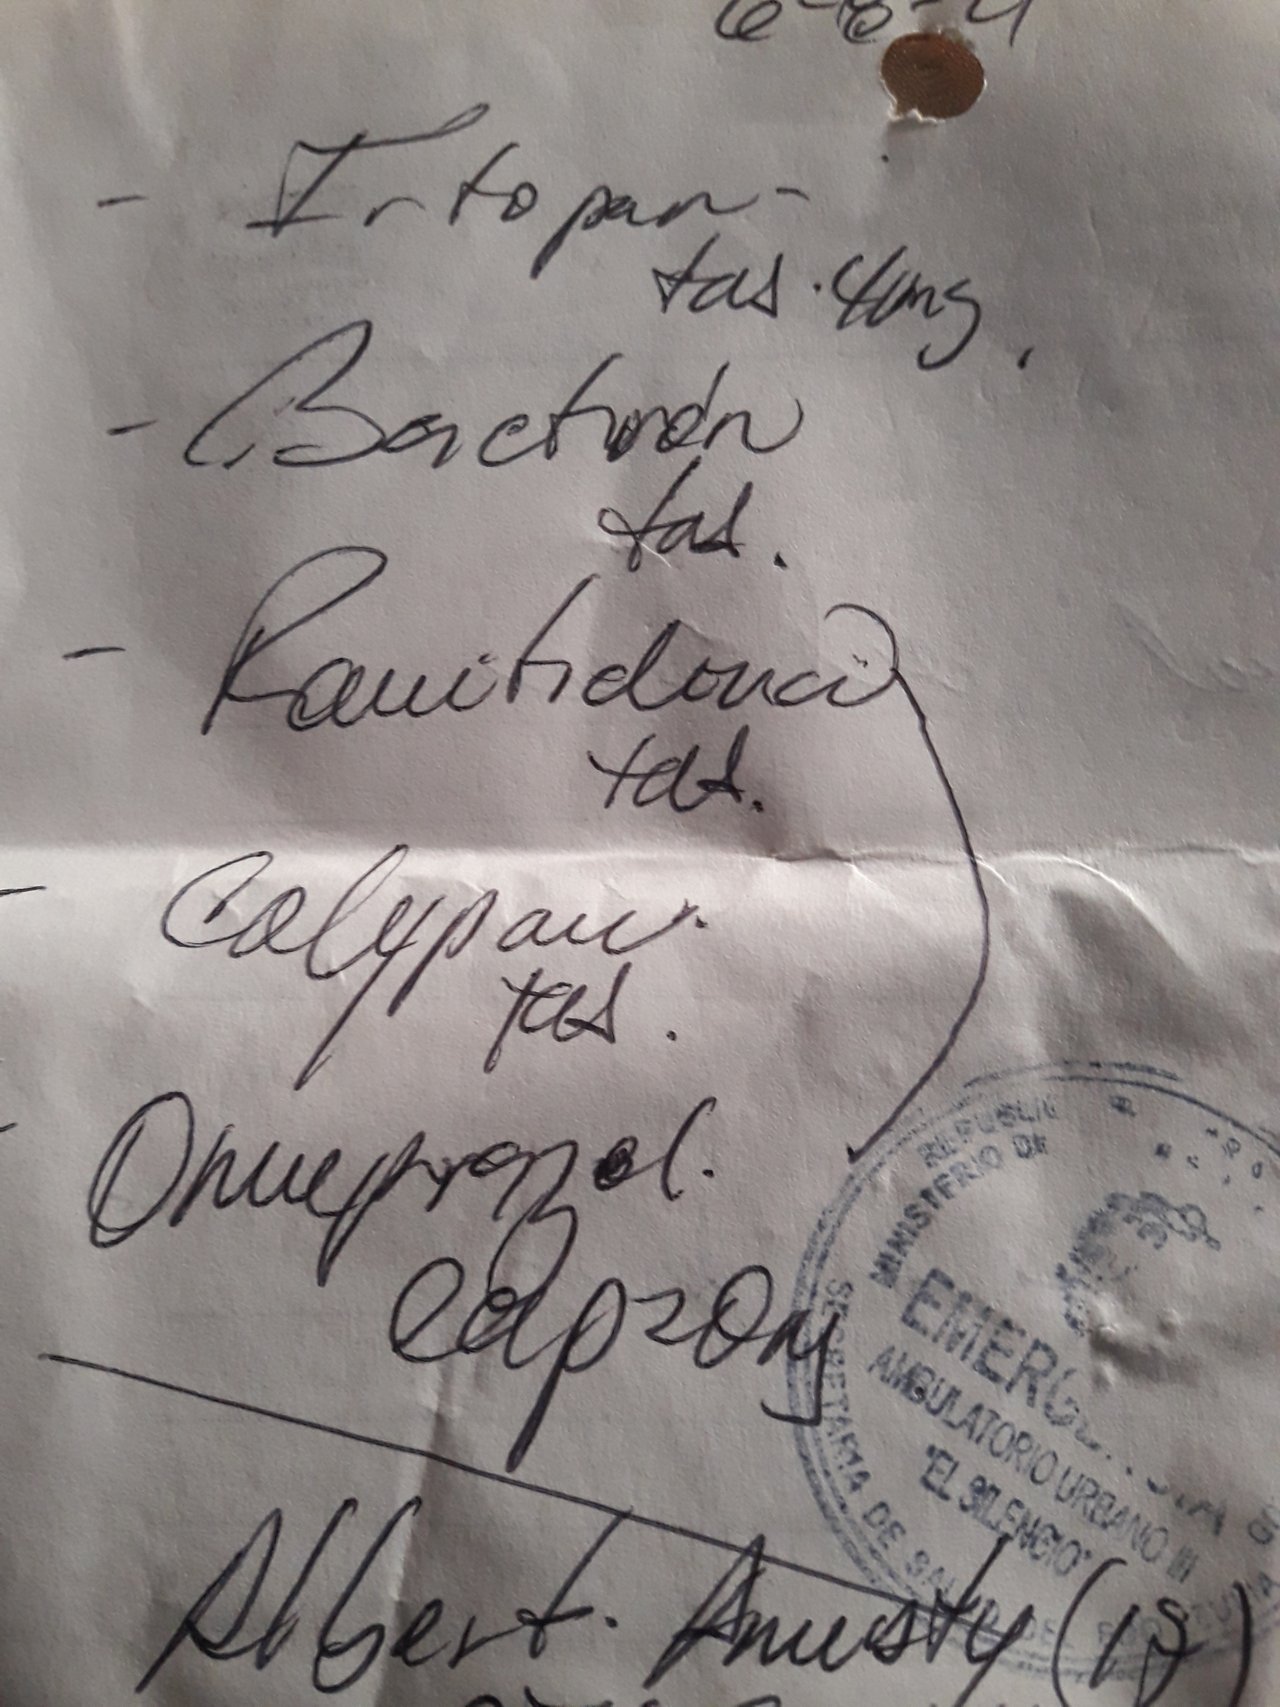 6-8-21
- Irtopan-
tas. 4mg.
- Bactrón
tas.
- Ranitidina
tas.
- Calypan.
tas.
- Omeprazol.
Cap 20mg
Albert. Amusty (18)
MINISTERIO DE
EMERG
AMBULATORIO URBANO III
"EL SILENCIO"
SECRETARIA DE SALUD DEL